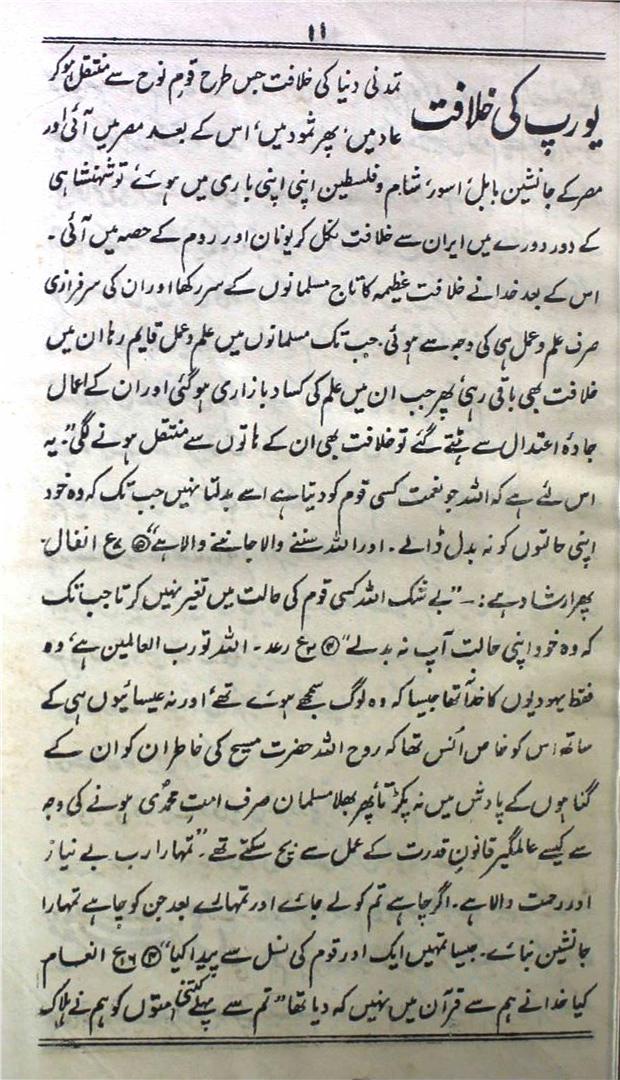 ۱۱
یورپ کی خلافت
تمدنی دنیا کی خلافت جس طرح قوم نوح سے منتقل ہو کر
عاد میں، پھر ثمود میں، اس کے بعد مصر میں آئی اور
مصر کے جانشین بابل، اسور، شام و فلسطین اپنی اپنی باری میں ہوئے تو شہنشاہی
کے دور دورے میں ایران سے خلافت نکل کر یونان اور روم کے حصہ میں آئی۔
اس کے بعد خدا نے خلافت عظیمہ کا تاج مسلمانوں کے سر رکھا اور ان کی سرفرازی
صرف علم و عمل ہی کی وجہ سے ہوئی۔ جب تک مسلمانوں میں علم و عمل قایم رہا ان میں
خلافت بھی باقی رہی، پھر جب ان میں علم کی کساد بازاری ہو گئی اور ان کے اعمال
جادۂ اعتدال سے ہٹتے گئے تو خلافت بھی ان کے ہاتوں سے منتقل ہونے لگی"۔ یہ
اس لئے ہے کہ اللہ جو نعمت کسی قوم کو دیتا ہے اسے بدلتا نہیں جب تک کہ وہ خود
اپنی حالتوں کو نہ بدل ڈالے۔ اور اللہ سننے والا جاننے والا ہے" ع انفال۔
پھر ارشاد ہے:۔ "بے شک اللہ کسی قوم کی حالت میں تغیر نہیں کرتا جب تک
کہ وہ خود اپنی حالت آپ نہ بدلے" ع رعد۔ اللہ تو رب العالمین ہے، وہ
فقط یہودیوں کا خدا تھا جیسا کہ وہ لوگ سمجھے ہوئے تھے، اور نہ عیسائیوں ہی کے
ساتھ اس کو خاص اُنس تھا کہ روح اللہ حضرت مسیح کی خاطر ان کو ان کے
گناہوں کے پادش میں نہ پکڑتا، پھر بھلا مسلمان صرف امتِ محمدی ہونے کی وجہ
سے کیسے عالمگیر قانونِ قدرت کے عمل سے بچ سکتے تھے۔ "تمہارا رب بے نیاز
اور رحمت والا ہے۔ اگر چاہے تم کو لے جائے اور تمہارے بعد جن کو چاہے تمہارا
جانشین بنائے۔ جیسا تمہیں ایک اور قوم کی نسل سے پیدا کیا" ۱۶ع انعام
کیا خدا نے ہم سے قرآن میں نہیں کہ دیا تھا "تم سے پہلے کتنی امتوں کو ہم نے ہلاک